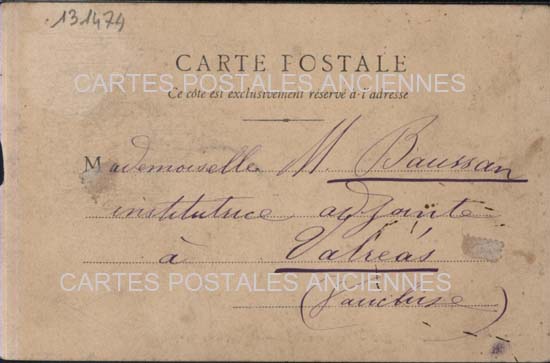 131474
CARTE POSTALE
CARTES POSTALES ANCIENNES
Ce côté est exclusivement réservé à l'adresse
Mademoiselle M. Baussan
institutrice adjointe
à Valréas
CARTES POSTALES ANCIENNES
(Vaucluse)